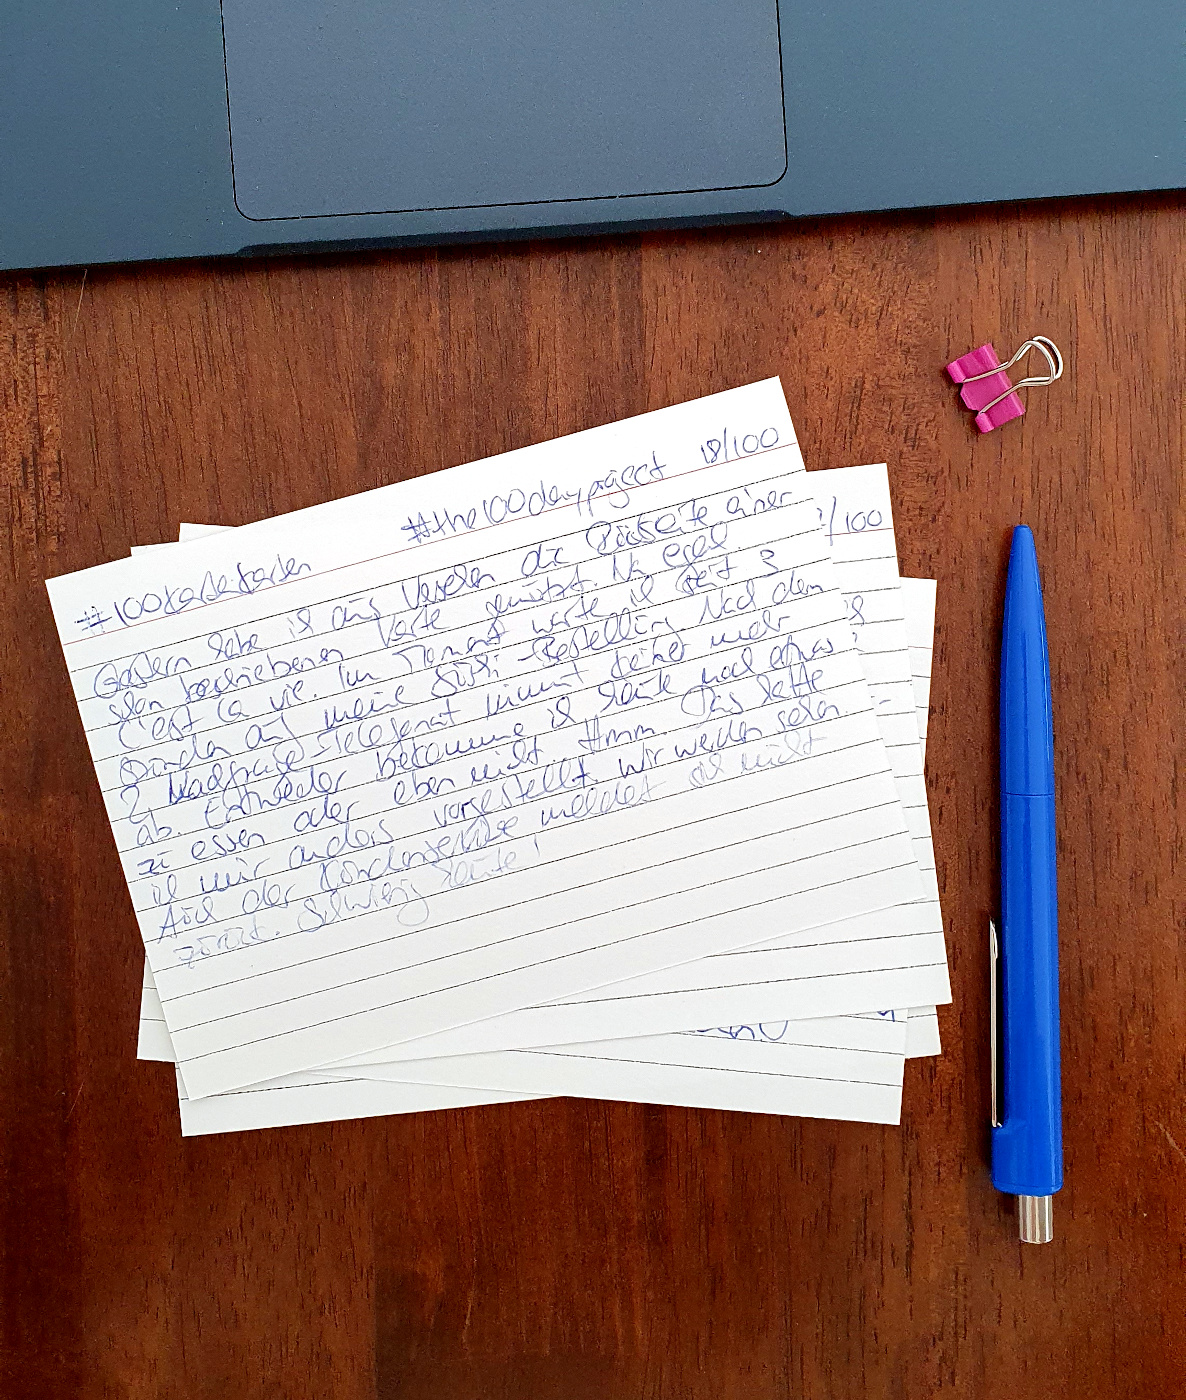 #100
#the100dayproject 18/100
Gestern habe ich aus Versehen die Rückseite einer
schon beschriebenen Karte genutzt. Na egal
C'est la vie. Im Moment warte ich seit 2
Stunden auf meine Sushi-Bestellung. Nach dem
2. Nachfrage-Telefonat nimmt keiner mehr
ab. Entweder bekomme ich heute noch etwas
zu essen oder eben nicht. Hmm. Das hatte
ich mir anders vorgestellt. Wir werden sehen
Auch der meldet sich nicht
zurück. Schwierig heute!
/100